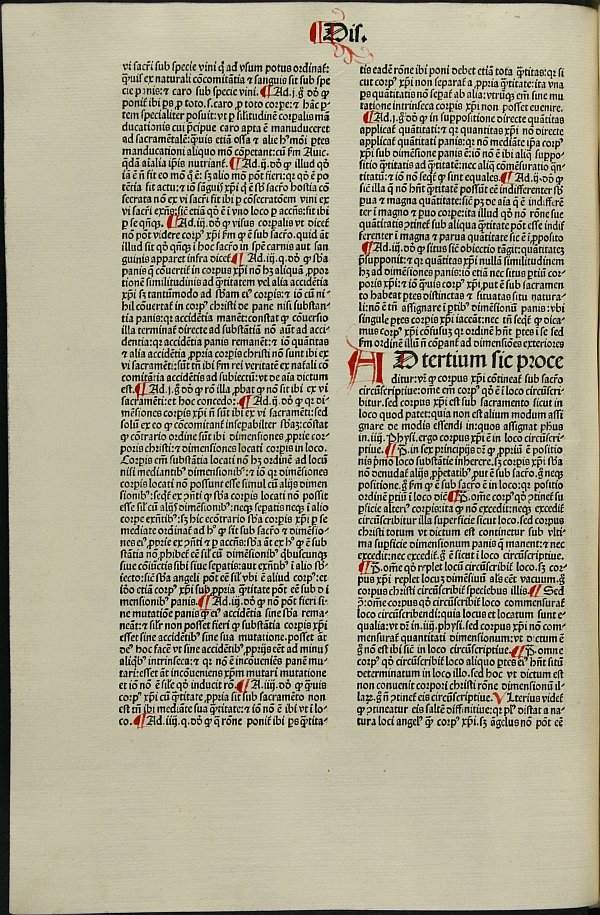 ¶ Dis.
vi sacr̄i sub specie vini q̄ ad vsum potus ordinat᷑:
q̄uis ex naturali cōcomitātia ⁊ sanguis sit sub spe
cie panis: ⁊ caro sub specie vini. ¶ Ad .j. q̄. dō ꝙ
ponit᷑ ibi ꝑs ꝓ toto .s. caro ꝓ toto corpe: ⁊ hāc ꝑ
tem specialiter posuit: vt ꝑ silitudinē corporalis mā
ducationis cui p̄cipue caro apta ē manduceret᷑
ad sacramētalē: q̄uis etiā ossa ⁊ alie hmōi ptes
manducationi aliquo mō cōpetant: cū ẜm Auic.
q̄dā aīalia ip̄is nutriant᷑. ¶ Ad .ij. dō ꝙ illud qō
secrata nō ex vi sacr̄i sit ibi ꝑ cōsecratōem vini ex
ꝑ se qn̄qꝫ. ¶ Ad .iij. dō ꝙ visus corpalis vt dicet᷑
nō pōt videre corpꝰ xp̄i ẜm ꝙ ē sub sacr̄o. quid āt
illud sit qō qn̄qꝫ ī hoc sacr̄o in spē carnis aut san
guinis apparet infra dicet᷑. ¶ Ad .iij. q. dō ꝙ sb̄a
panis q̄ cōuertit᷑ in corpus xp̄i nō hꝫ aliquā ꝓpor
tionē similitudinis ad q̄titatem vel alia accidētia
xp̄i sꝫ tantūmodo ad sb̄am eiꝰ corpis: ⁊ iō cū ni⸗
hil cōuertat᷑ in corpꝰ christi de pane nisi substan⸗
tia panis: qꝛ accidētia manēt: constat ꝙ cōuersio
illa terminat᷑ directe ad substātiā nō aūt ad acci⸗
dentia: qꝛ accidētia panis remanēt: ⁊ iō quātitas
⁊ alia accidētia ꝓpria corpis christi nō sunt ibi ex
vi sacramēti: sūt tn̄ ibi ẜm rei veritatē ex natali cō
comitātia accidētis ad subiectū: vt de aīa dictum
est. ¶ Ad .j. q̄ dō ꝙ rō illa ꝓbat ꝙ nō sit ibi ex vi
sacramēti: et hoc concedo. ¶ Ad .ij. dō ꝙ qꝛ di
mēsiones corpis xp̄i nō sūt ibi ex vi sacramēti: sed
solū ex eo ꝙ cōcomitant᷑ insepabiliter sb̄az: cōstat
ꝙ cōtrario ordine sūt ibi dimensiones ꝓprie cor⸗
poris christi: ⁊ dimensiones locati corpis in loco.
Corpis em̄ substātia locati nō hꝫ ordinē ad locū
nisi mediantibꝰ dimensionibꝰ: ⁊ iō qꝛ dimēsiones
corpis locati nō possunt esse simul cū alijs dimen
sionibꝰ: seqt᷑ ex pn̄ti ꝙ sb̄a corpis locati nō possit
esse sil᷑ cū alijs dimēsionibꝰ: neqꝫ sepatis neqꝫ ī alio
corpe exn̄tibꝰ: sꝫ hic ecōtrario sb̄a corpis xp̄i ꝑ se
stātia nō ꝓhibet᷑ eē sil᷑ cū dimēsionibꝰ qbuscunqꝫ
siue cōiūctis sibi siue sepatis: aut exn̄tibꝰ ī alio sb̄
iecto: sic̄ sb̄a angeli pōt eē sil᷑ vbi ē aliud corpꝰ: et
iō etiā corpꝰ xp̄i sub ꝓpria q̄titate pōt eē sub di
mensionibꝰ panis. ¶ Ad .iij. dō ꝙ nō pōt fieri si⸗
ne mutatiōe panis ꝙ eiꝰ accidētia sine sb̄a rema⸗
neāt: ⁊ sil᷑r non posset fieri ꝙ substātia corpis xp̄i
esset sine accidētibꝰ sine sua mutatione. posset āt
deꝰ hoc facē vt sine accidētibꝰ ꝓprijs eēt ad minꝰ
aliqbꝰ intrinseca: ⁊ qꝛ nō ē incōueniēs panē mu⸗
tari: esset āt incōueniens xp̄m mutari mutatione
et iō nō ē sile qō inducit rō. ¶ Ad .iiij. dō ꝙ q̄uis
corpꝰ xp̄i cū q̄titate ꝓpria sit sub sacramēto non
est tn̄ ibi mediāte sua q̄titate: ⁊ iō nō ē ibi vt ī lo⸗
co. ¶ Ad .iiij. q. dō ꝙ q̄ rōne ponit᷑ ibi ꝑs q̄tita⸗
tis eadē rōne ibi poni debet etiā tota q̄titas: qꝛ si
cut corpꝰ xp̄i non separat᷑ a ꝓpria q̄titate: ita vna
ꝑs quātitatis nō sepat᷑ ab alia: vtrūqꝫ em̄ sine mu
tatione intrinseca corpis xp̄i non posset euenire.
¶ Ad .j. q̄ dō ꝙ in suppositione directe quātitas
applicat᷑ quātitati: ⁊ qꝛ quātitas xp̄i nō directe
applicat᷑ quātitati panis: qꝛ nō mediāte ip̄a corpꝰ
xp̄i sub dimēsiōne panis ē: iō nō ē ibi aliq̄ suppo⸗
sitio q̄titatis ad q̄titatē: nec aliq̄ cōmēsuratio q̄n⸗
titatū: ⁊ iō nō seqt᷑ ꝙ sunt equales. ¶ Ad .ij. dō ꝙ
sic illa q̄ nō hn̄t q̄titatē possūt eē indifferenter sb̄
pua ⁊ magna quātitate: sic̄ pꝫ de aīa q̄ ē indiffe
ter ī magno ⁊ puo corpe: ita illud qō nō rōne sue
quātitatis ꝯtinet᷑ sub aliqua q̄titate pōt esse indif
ferenter ī magna ⁊ parua quātitate sic ē ī ꝓposito
¶ Ad .iij. dō ꝙ situs sic̄ obiectio tāgit: quātitatez
p̄supponit: ⁊ qꝛ quātitas xp̄i nullā similitudinem
hꝫ ad dimēsiones panis: iō etiā nec situs ptiū cor⸗
poris xp̄i: ⁊ iō q̄uis corpꝰ xp̄i, put ē sub sacramen
to habeat ptes distinctas ⁊ situatas situ natura⸗
li: nō ē tn̄ assignare ī ptibꝰ dimēsionū panis: vbi
singule ptes corpis xp̄i iaceāt: nec tn̄ seqt᷑ ꝙ dica⸗
mus corpꝰ xp̄i cōfusuꝫ qꝛ ordinē hn̄t ptes ī se sed
ẜm ordinē illū nō cōpant᷑ ad dimensiones exteriores
AD tertium sic proce
ditur: vr̄ ꝙ corpus xp̄i cōtineat᷑ sub sacr̄o
circūscriptiue: ome em̄ corpꝰ qō ē ī loco circūscri⸗
bitur. sed corpus xp̄i est sub sacramento sicut in
loco quod patet: quia non est alium modum assi
gnare de modis essendi in: quos assignat phus
in .iiij. Physi. ergo corpus xp̄i ē in loco circūscri⸗
ptiue. ¶ P. in sex principijs dr̄ ꝙ ꝓpriū ē positio
nis p̄mo loco substātie inherere. sꝫ corpis xp̄i sb̄a
nō denudat᷑ alijs ꝓpetatibꝰ put ē sub sacr̄o. q̄ neqꝫ
positione. q̄ ẜm ꝙ ē sub sacr̄o ē in loco: qꝛ positio
ordinē ptiū ī loco dic̄. ¶ P. ome corpꝰ qō ꝯtinet᷑ su
pficie alterꝰ corpis: ita ꝙ nō excedit: neqꝫ excedit᷑
circūscribitur illa superficie sicut loco. sed corpus
christi totum vt dictum est continetur sub vlti⸗
ma supficie dimensionum panis q̄ manent: ⁊ nec
excedit: nec excedit᷑. q̄ ē sicut ī loco circūscriptiue.
¶ P. ome qō replet locū circūscribit᷑ loco. sꝫ cor⸗
pus xp̄i replet locuꝫ dimēsiuū als eēt vacuum. q̄
corpus christi circūscribit᷑ speciebus illis. ¶ Sed
ꝯ: ome corpꝰ qō circūscribit᷑ loco commensurat᷑
loco circūscribendi: quia locus et locatum sunt e⸗
qualia: vt dr̄ in .iiij. physi. sed corpus xp̄i nō com⸗
mensurat᷑ quantitati dimensionum: vt dictum ē
q̄ nō est ibi sic̄ in loco circūscriptiue. ¶ P. omne
corpꝰ qō circūscribit᷑ loco aliquo ptes eiꝰ hn̄t sitū
determinatum in loco illo. sed hoc vt dictum est
non conuenit corpori christi rōne dimensionū il⸗
laꝝ. q̄ nō ꝯtinet᷑ eis circūscriptiue. Vlterius videt᷑
ꝙ ꝯtineatur eis saltē diffinitiue: qꝛ plꝰ distat a na⸗
tura loci angelꝰ ꝙ corpꝰ xp̄i. sꝫ āgelus nō pōt eē